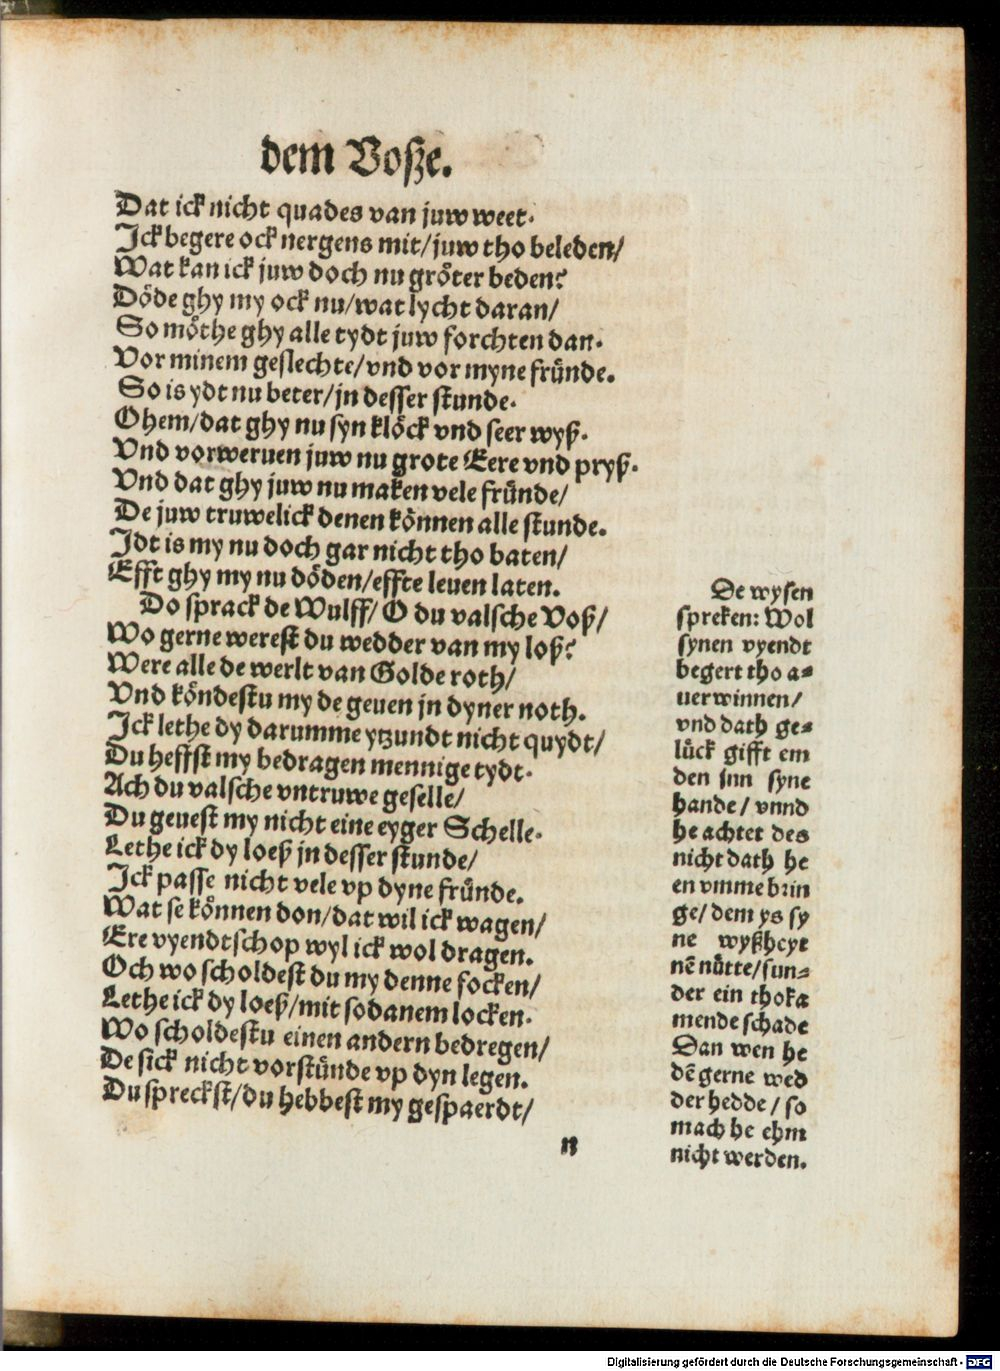 dem Voßze.
Dat ick nicht quades van juw weet.
Ick begere ock nergens mit/ juw tho beleden/
Wat kan ick juw doch nu gröter beden?
Döde ghy my ock nu/ wat lycht daran/
So möthe ghy alle tydt juw forchten dan.
Vor minem geslechte/ vnd vor myne fründe.
So is ydt nu beter/ jn desser stunde.
Ohem/ dat ghy nu syn klöck vnd seer wyß.
Vnd vorweruen juw nu grote Eere vnd pryß.
Vnd dat ghy juw nu maken vele fründe/
De juw truwelick denen können alle stunde.
Idt is my nu doch gar nicht tho baten/
Efft ghy my nu döden/ effte leuen laten.
Do sprack de Wulff/ O du valsche Voß/
Wo gerne werest du wedder van my loß?
Were alle de werlt van Golde roth/
Vnd köndestu my de geuen jn dyner noth.
Ick lethe dy darumme ytzundt nicht quydt/
Du heffst my bedragen mennige tydt.
Ach du valsche vntruwe geselle/
Du geuest my nicht eine eyger Schelle.
Lethe ick dy loeß jn desser stunde/
Ick passe nicht vele vp dyne fründe.
Wat se können don/ dat wil ick wagen/
Ere vyendtschop wyl ick wol dragen.
Och wo scholdest du my denne focken/
Lethe ick dy loeß/ mit sodanem locken.
Wo scholdestu einen andern bedregen/
De sick nicht vorstünde vp dyn legen.
Du spreckst/ du hebbest my gespaerdt/
n
De wysen
spreken: Wol
synen vyendt
begert tho a⸗
uerwinnen/
vnd dath ge⸗
lück gifft em
den inn syne
hande/ vnnd
he achtet des
nicht dath he
en vmme brin
ge/ dem ys sy
ne wyßheyt
nẽ nütte/ sun⸗
der ein thoka
mende schade
Dan wen he
dẽ gerne wed
der hedde/ so
mach he ehm
nicht werden.
Digitalisierung gefördert durch die Deutsche Forschungsgemeinschaft - DFG